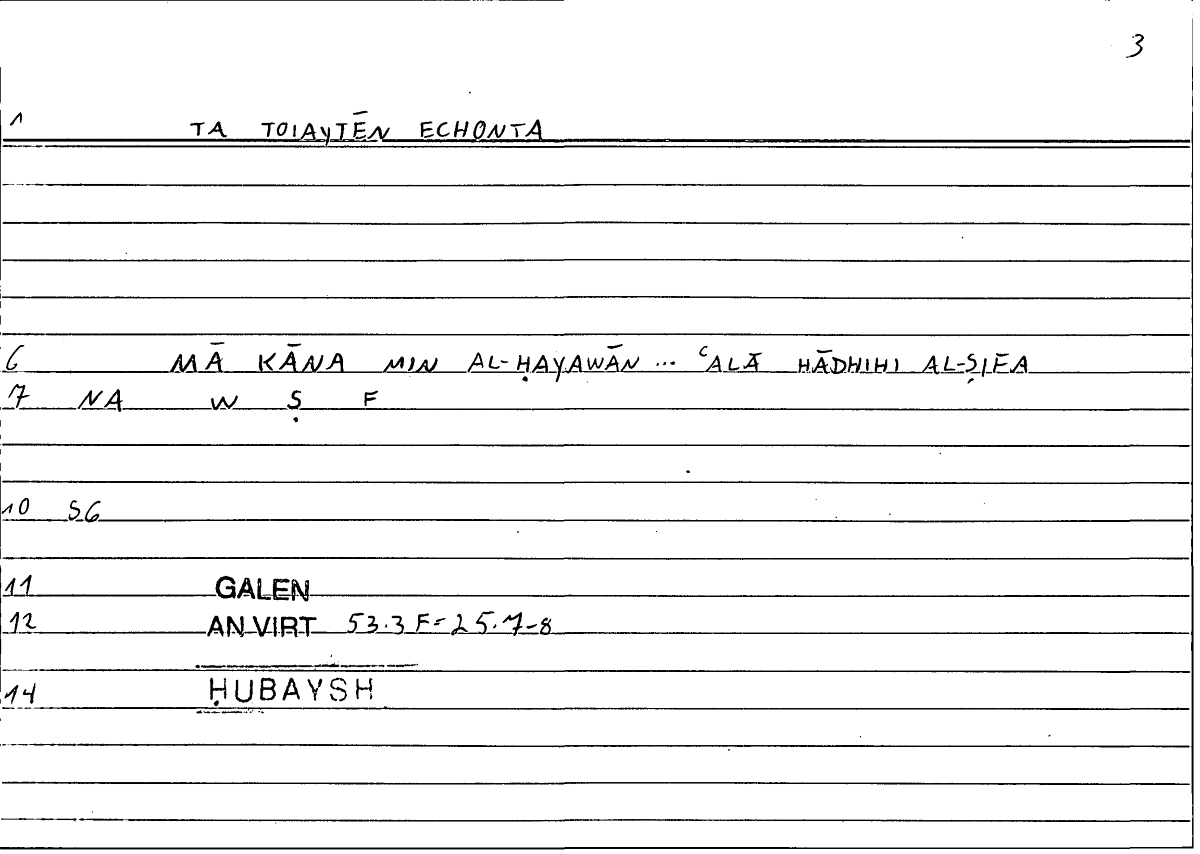 3
1 TA TOIAYTĒN ECHONTA
6 MĀ KĀNA MIN AL-ḤAYAWĀN ... ʿALĀ HĀDHIHI AL-ṢIFA
7 NA W Ṣ F
10 SG
11 GALEN
12 AN VIRT 53.3 F=25.7-8
14 ḤUBAYSH